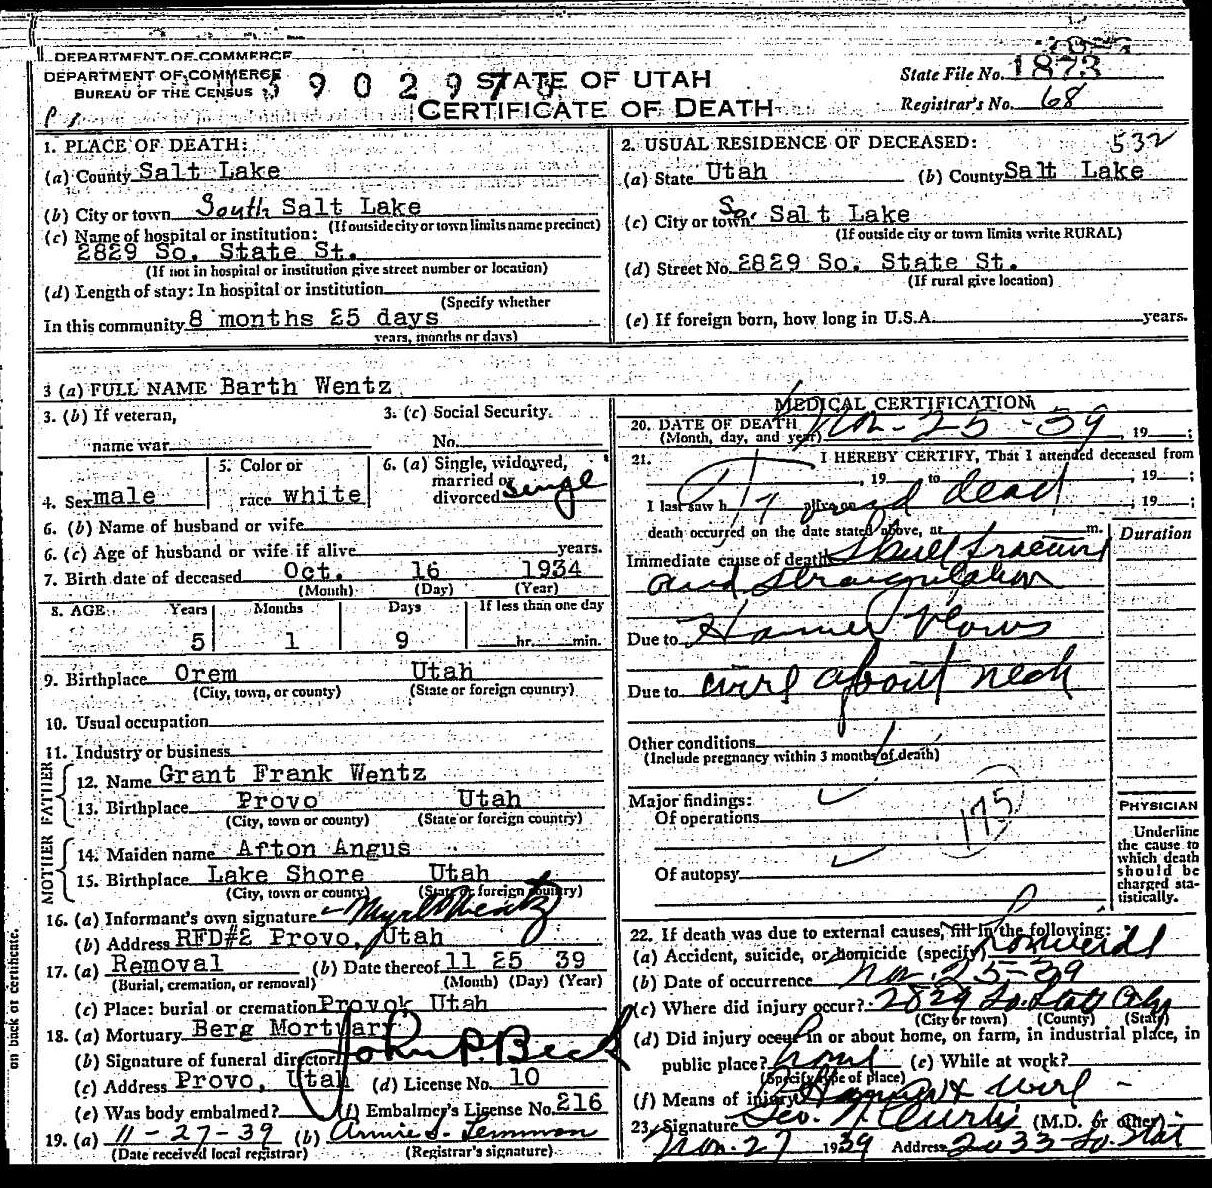 DEPARTMENT OF COMMERCE
DEPARTMENT OF COMMERCE
BUREAU OF THE CENSUS
STATE OF UTAH
CERTIFICATE OF DEATH
State File No. 1873
Registrar's No. 68
1. PLACE OF DEATH:
(a) County Salt Lake
(b) City or town South Salt Lake
(If outside city or town limits name precinct)
(c) Name of hospital or institution:
2829 So. State St.
(If not in hospital or institution give street number or location)
(d) Length of stay: In hospital or institution
(Specify whether
In this community 8 months 25 days
years, months or days)
532
2. USUAL RESIDENCE OF DECEASED:
(a) State Utah (b) County Salt Lake
(c) City or town So. Salt Lake
(If outside city or town limits write RURAL)
(d) Street No. 2829 So. State St.
(If rural give location)
(e) If foreign born, how long in U.S.A. years.
3 (a) FULL NAME Barth Wentz
3. (b) If veteran,
name war
3. (c) Social Security
No.
4. Sex male
5. Color or
race white
6. (a) Single, widowed,
married or
divorced single
6. (b) Name of husband or wife
6. (c) Age of husband or wife if alive years.
7. Birth date of deceased Oct. 16 1934
(Month) (Day) (Year)
8. AGE Years Months Days If less than one day
5 1 9 hr. min.
9. Birthplace Orem Utah
(City, town, or county) (State or foreign country)
10. Usual occupation
11. Industry or business
FATHER
12. Name Grant Frank Wentz
13. Birthplace Provo Utah
(City, town or county) (State or foreign country)
MOTHER
14. Maiden name Afton Angus
15. Birthplace Lake Shore Utah
(City, town or county) (State or foreign country)
16. (a) Informant's own signature Myrl Wentz
(b) Address RFD#2 Provo, Utah
17. (a) Removal (b) Date thereof 11 25 39
(Burial, cremation, or removal) (Month) (Day) (Year)
(c) Place: burial or cremation Provo, Utah
18. (a) Mortuary Berg Mortuary
(b) Signature of funeral director John P. Beck
(c) Address Provo, Utah (d) License No. 10
(e) Was body embalmed? (f) Embalmer's License No. 216
19. (a) 11-27-39 (b) Annie S. Lemmon
(Date received local registrar) (Registrar's signature)
on back of certificate.
MEDICAL CERTIFICATION
20. DATE OF DEATH Nov-25-39, 19 ;
(Month, day, and year)
21. I HEREBY CERTIFY, That I attended deceased from
, 19 to , 19 ;
I last saw h alive on dead , 19 ;
death occurred on the date stated above, at m.
Duration
Immediate cause of death Skull fracture
and Strangulation
Due to Hammer blows
Due to wire about neck
Other conditions
(Include pregnancy within 3 months of death)
Major findings:
Of operations
175
Of autopsy
PHYSICIAN
Underline
the cause to
which death
should be
charged sta-
tistically.
22. If death was due to external causes, fill in the following:
(a) Accident, suicide, or homicide (specify) homicide
(b) Date of occurrence Nov. 25-39
(c) Where did injury occur? 2829 So. State City
(City or town) (County) (State)
(d) Did injury occur in or about home, on farm, in industrial place, in
public place? home (e) While at work?
(Specify type of place)
(f) Means of injury Hammer & wire
23. Signature Geo. N. Curtis (M.D. or other)
Nov. 27 1939 Address 2033 So. State